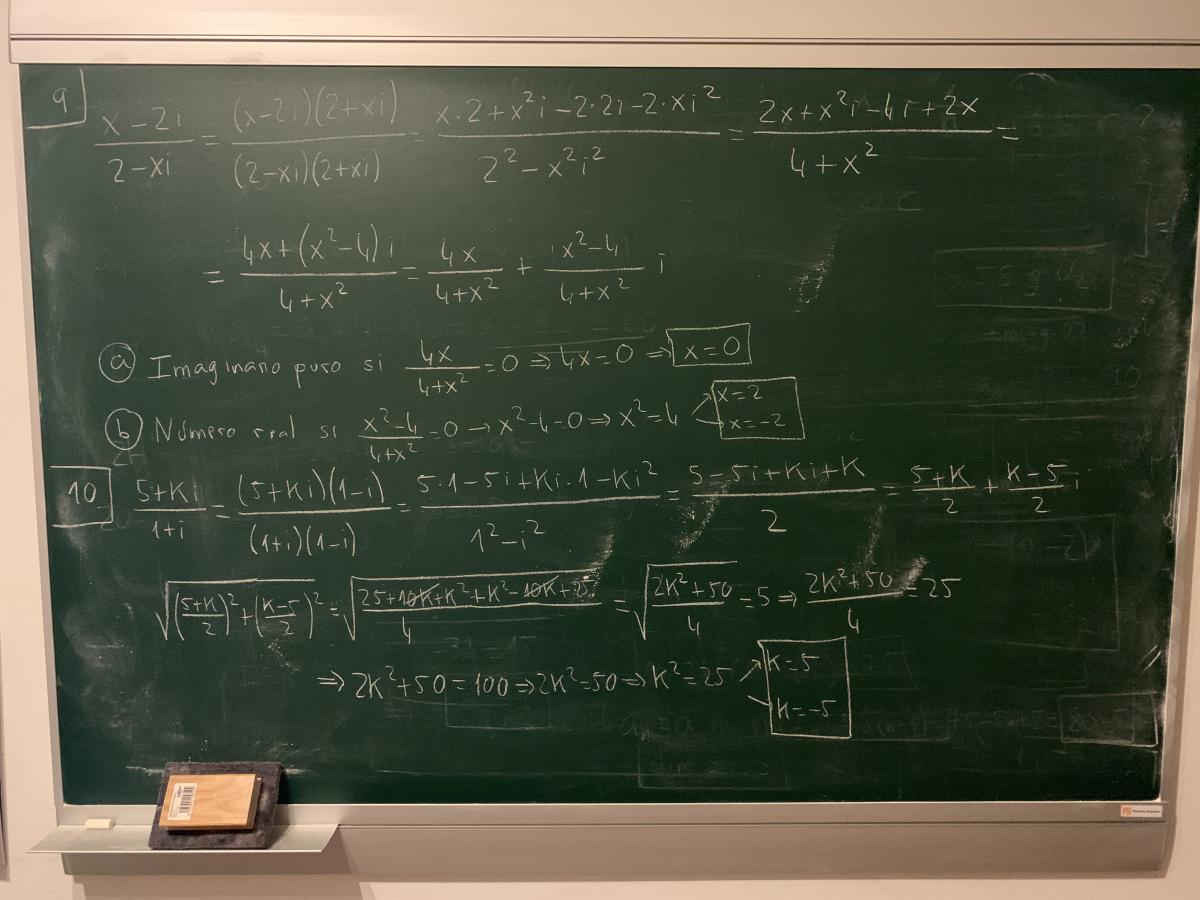 9
(x-2i)/(2-xi) = ((x-2i)(2+xi))/((2-xi)(2+xi)) = (x·2+x²i-2·2i-2·xi²)/(2²-x²i²) = (2x+x²i-4i+2x)/(4+x²) =
= (4x+(x²-4)i)/(4+x²) = 4x/(4+x²) + (x²-4)/(4+x²) i
a Imaginario puro si 4x/(4+x²) = 0 ⇒ 4x=0 ⇒ x=0
b Número real si (x²-4)/(4+x²) = 0 → x²-4=0 ⇒ x²=4 x=2 x=-2
10 (5+Ki)/(1+i) = ((5+Ki)(1-i))/((1+i)(1-i)) = (5·1-5i+Ki·1-Ki²)/(1²-i²) = (5-5i+Ki+K)/2 = (5+K)/2 + (K-5)/2 i
√(((5+K)/2)²+((K-5)/2)²) = √((25+10K+K²+K²-10K+25)/4) = √((2K²+50)/4) = 5 ⇒ (2K²+50)/4 = 25
⇒ 2K²+50=100 ⇒ 2K²=50 ⇒ K²=25 K=5 K=-5